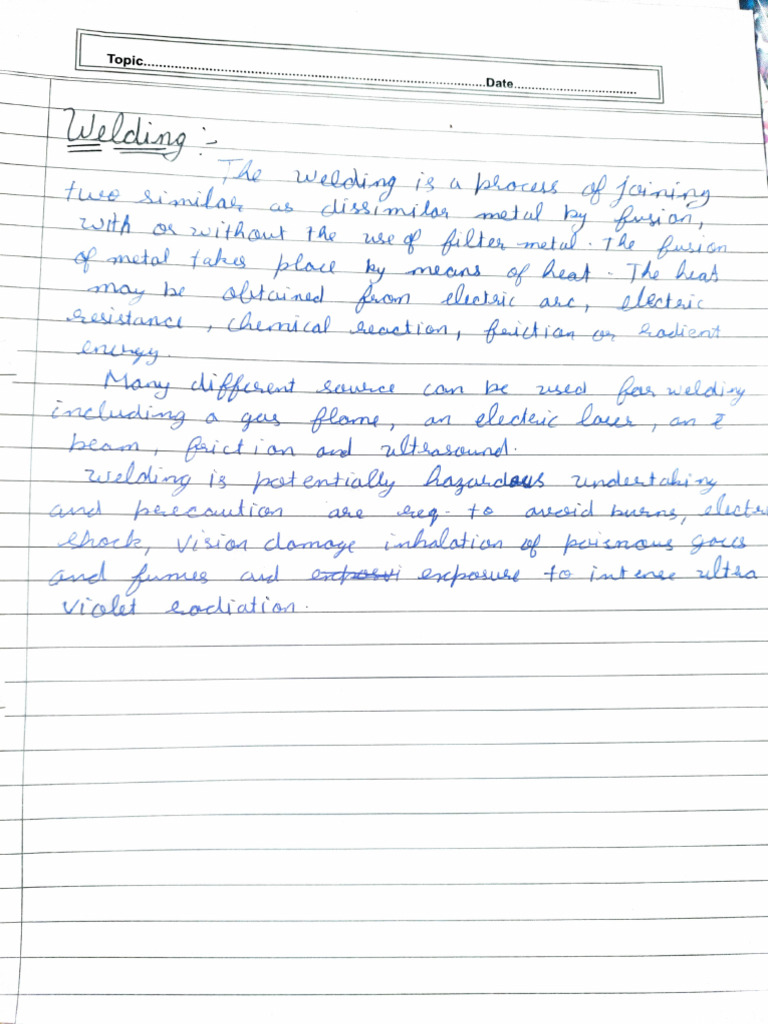 Topic........................................Date........................
Welding :-
The welding is a process of joining
two similar as dissimilar metal by fusion,
with or without the use of filter metal. The fusion
of metal takes place by means of heat. The heat
may be obtained from electric arc, electric
resistance, chemical reaction, friction or radient
energy.
Many different source can be used for welding
including a gas flame, an electric laser, an E
beam, friction and ultrasound.
Welding is potentially hazardous undertaking
and precaution are req. to avoid burns, electri
shock, vision damage inhalation of poisnous gases
and fumes and exposure to intense ultra
violet radiation.